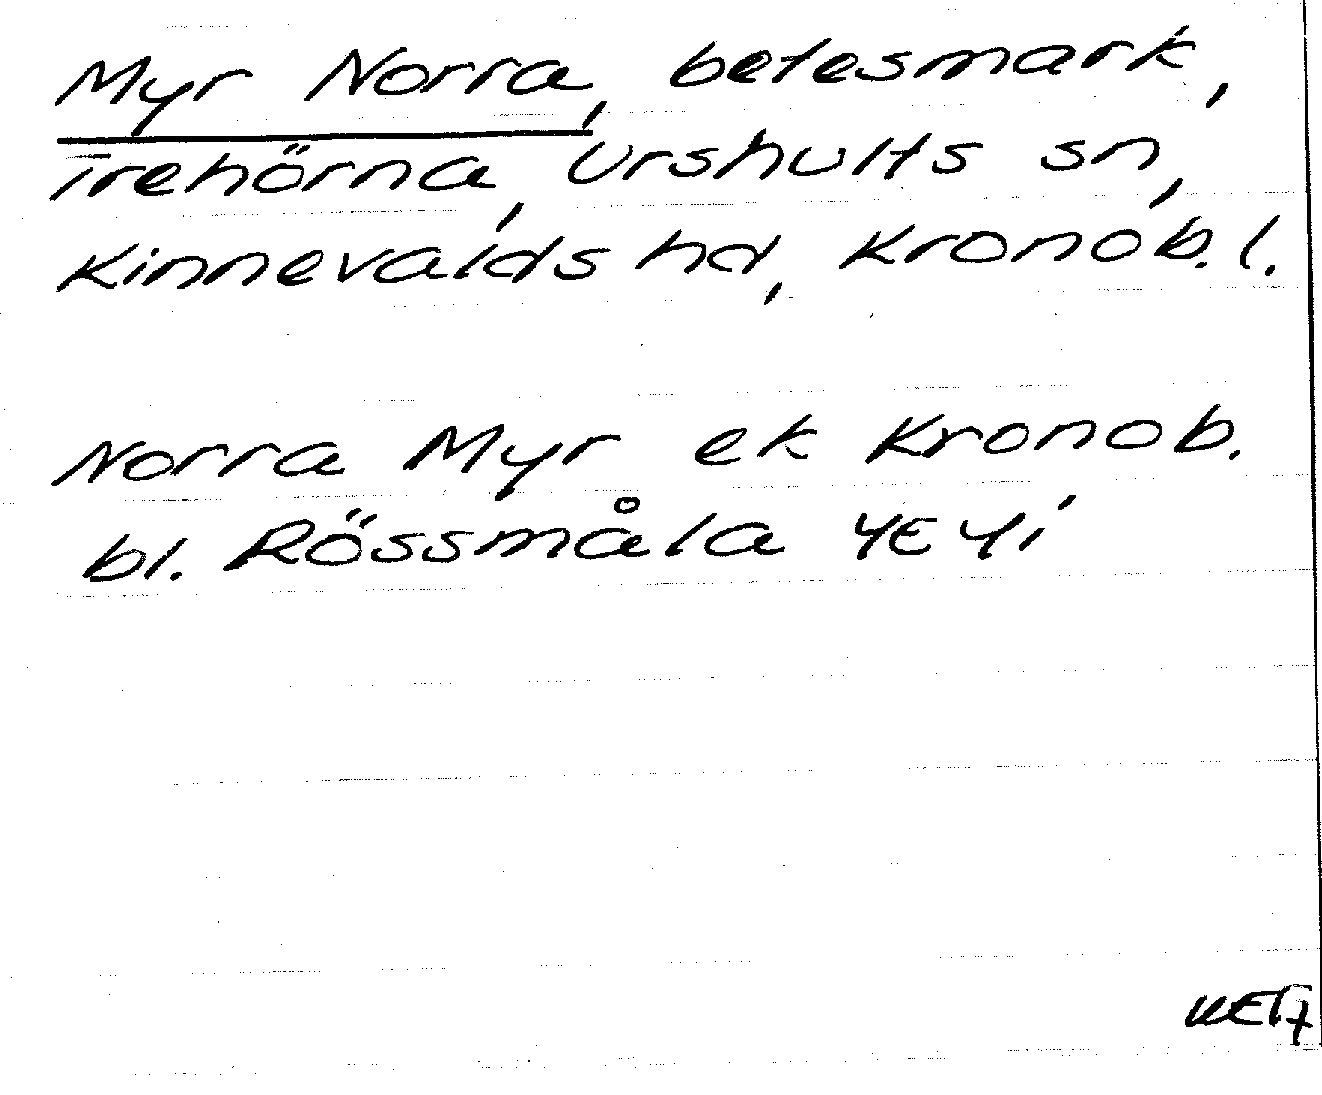 Myr Norra, betesmark,
Trehörna, Urshults sn,
Kinnevalds hd, Kronob. l.
Norra Myr ek Kronob.
bl. Rössmåla 4E 4i